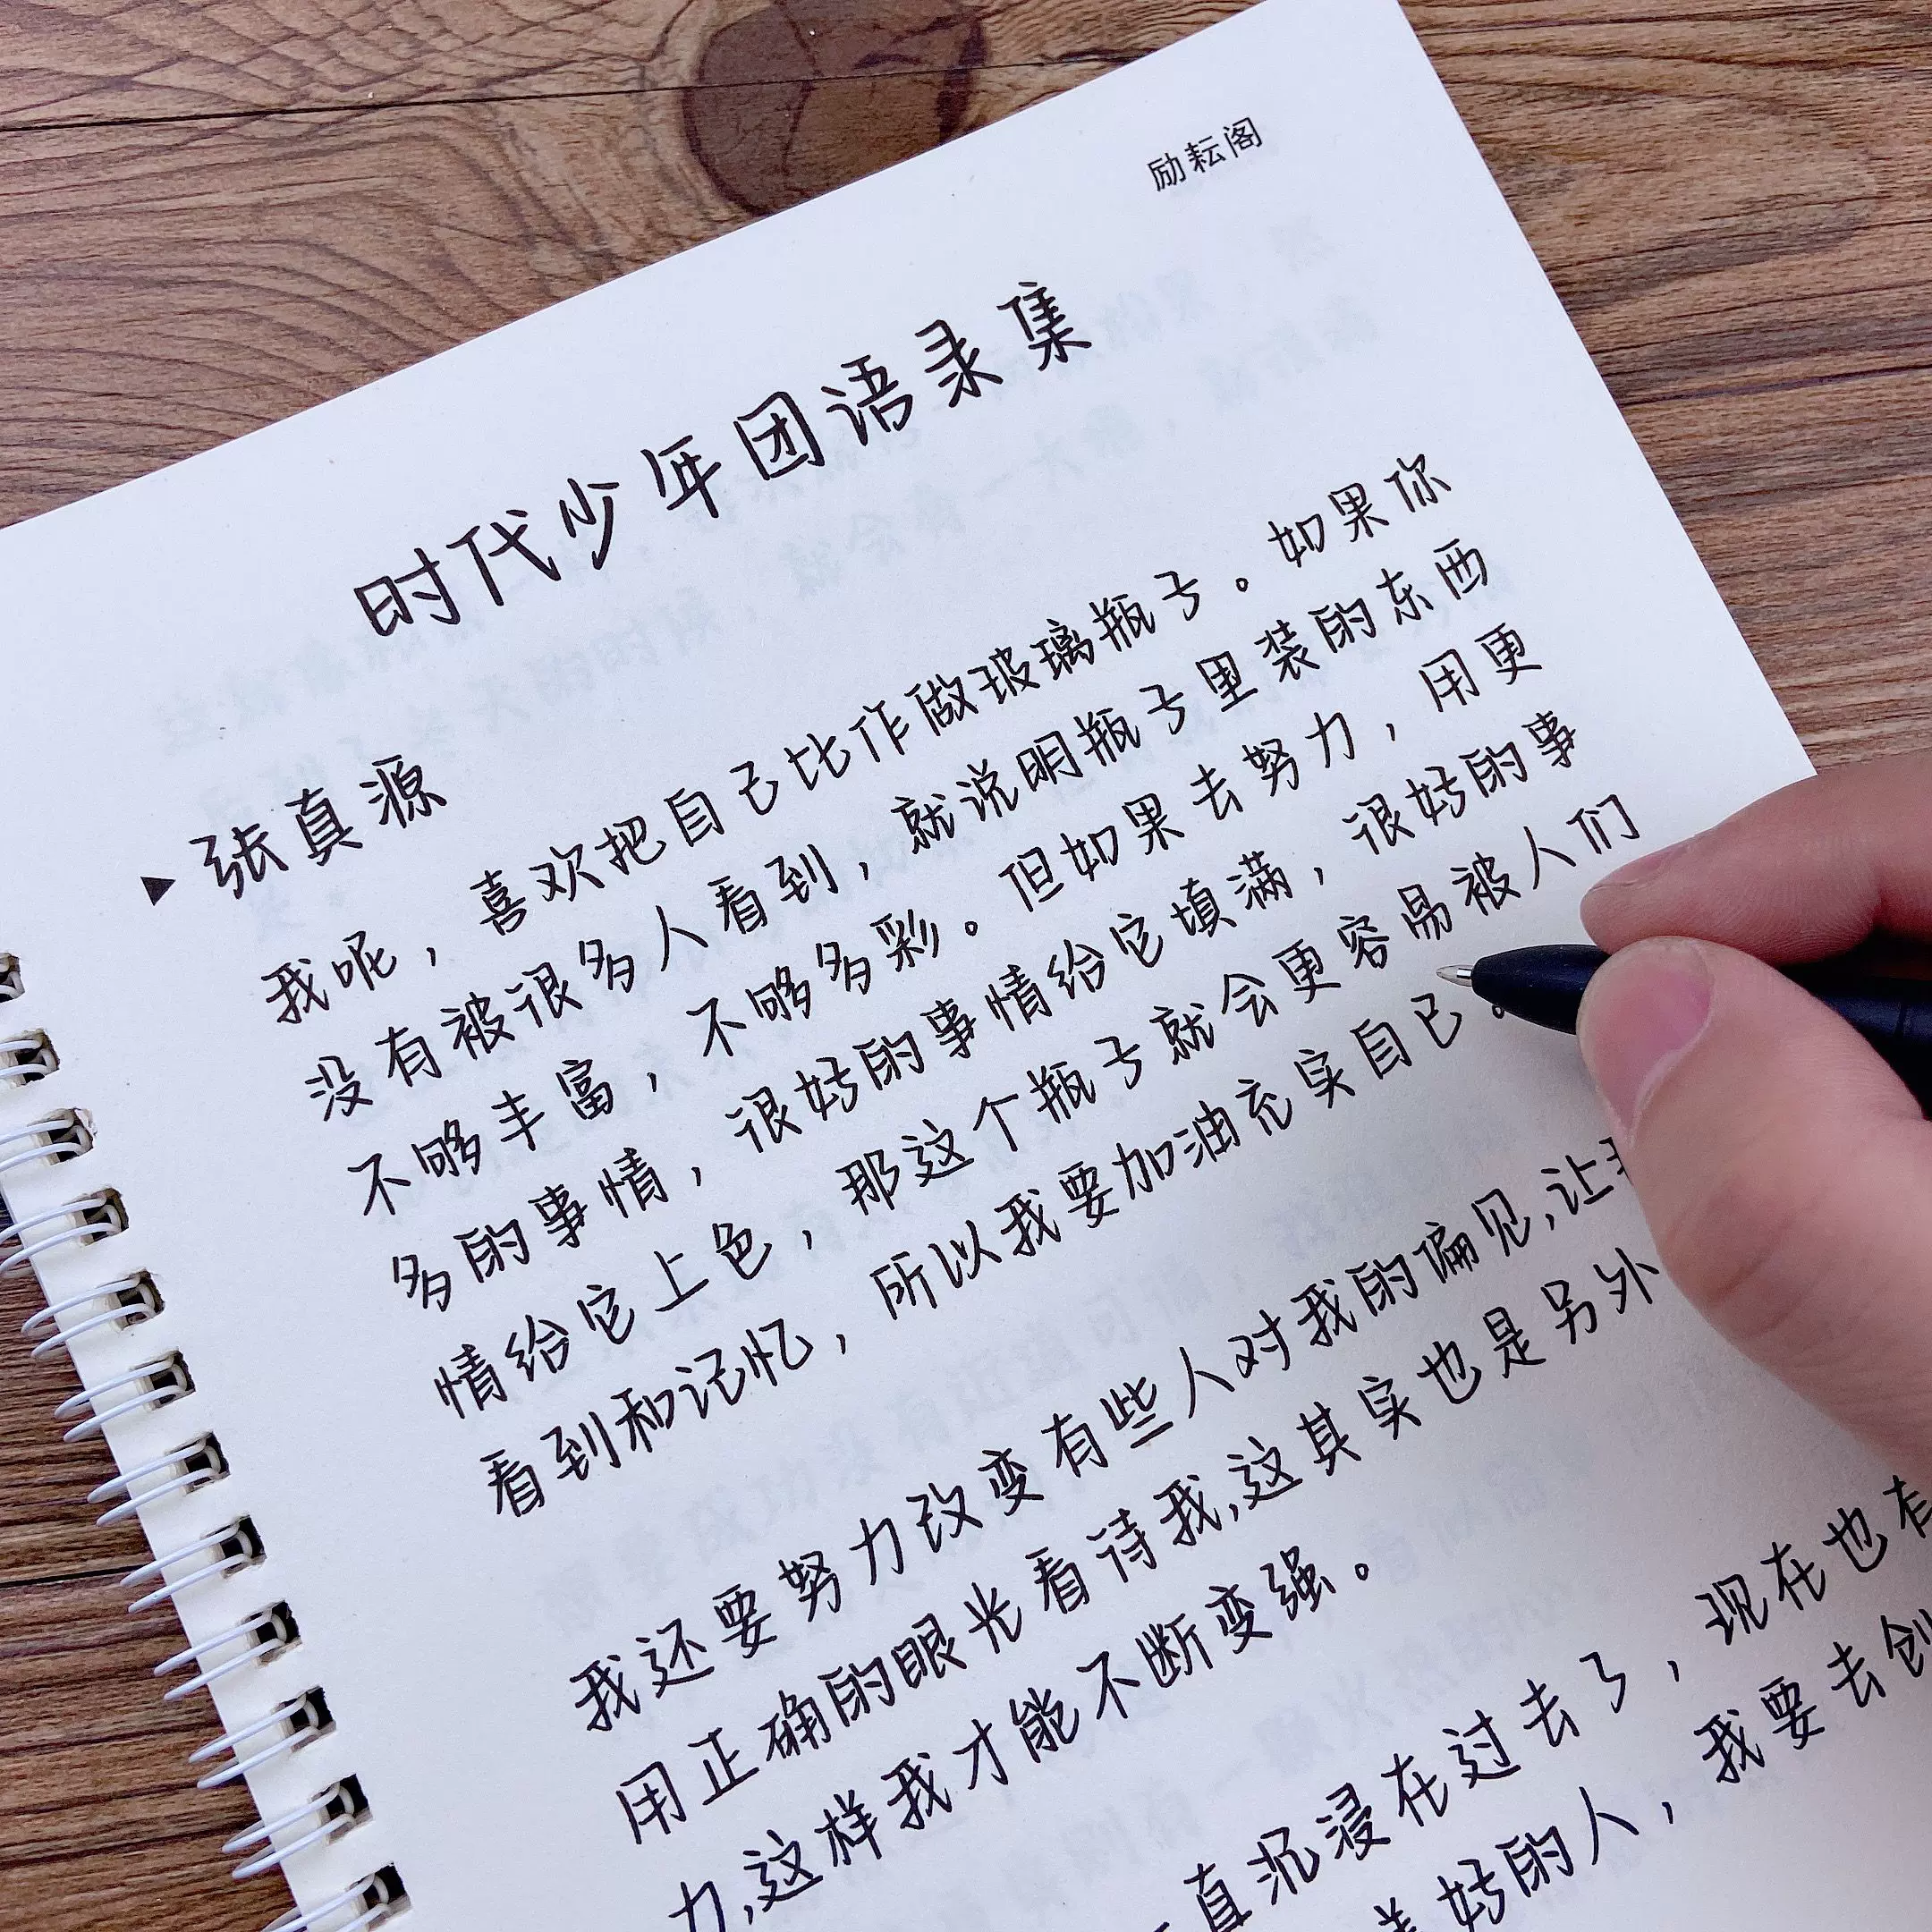 励耘阁
时代少年团语录集
▶张真源
我呢，喜欢把自己比作做玻璃瓶子。如果你
没有被很多人看到，就说明瓶子里装的东西
不够丰富，不够多彩。但如果去努力，用更
多的事情，很好的事情给它填满，很好的事
情给它上色，那这个瓶子就会更容易被人们
看到和记忆，所以我要加油充实自己。
我还要努力改变有些人对我的偏见，让
用正确的眼光看待我，这其实也是另外
力，这样我才能不断变强。
直沉浸在过去了，现在也有
好的人，我要去创